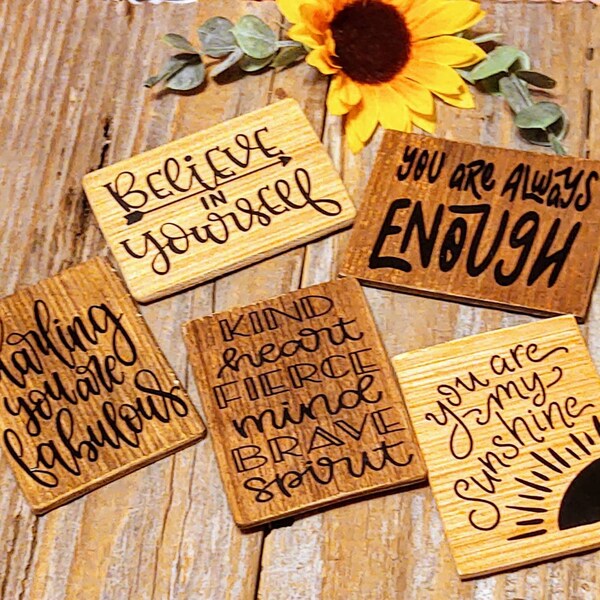 BELIEVE
IN
yourself
YOU ARE ALWAYS
ENOUGH
darling
you are
fabulous
KIND
heart
FIERCE
mind
BRAVE
spirit
you are
my
sunshine